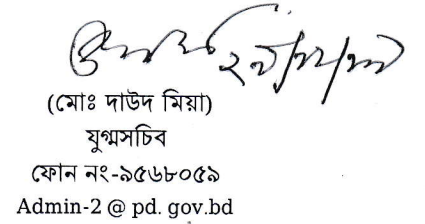 (মোঃ দাউদ মিয়া)
যুগ্মসচিব
ফোন নং-৯৫৬৮০৫৯
Admin-2 @ pd. gov.bd